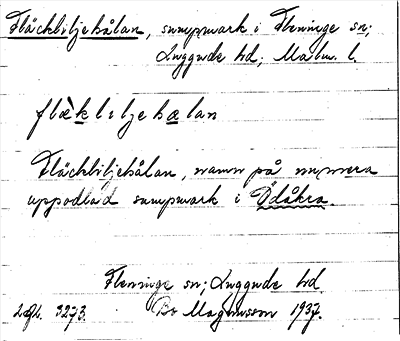 Fläckliljehålan, sumpmark i Fleninge sn;
Luggude hd; Malm. l.
flæ̀kliljehålan
Fläckliljehålan, namn på numera
uppodlad sumpmark i Ödåkra.
Fleninge sn; Luggude hd.
3273. Bo Magnusson 1937.